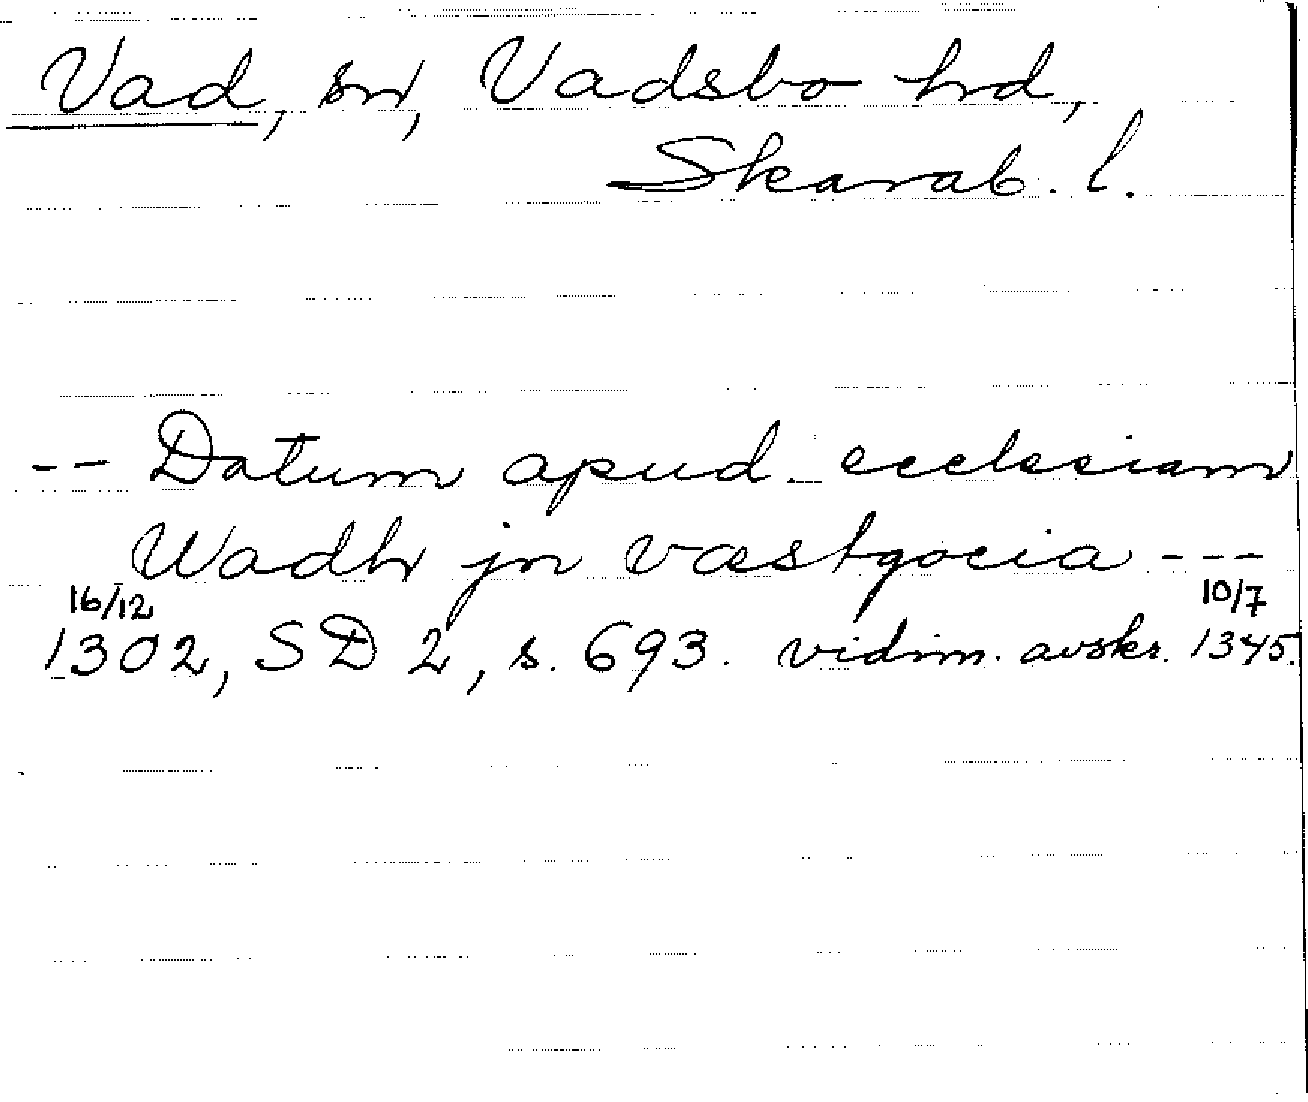 Vad, sn, Vadsbo hd,
Skarab. l.
-- Datum apud ecclesiam
Wadh jn væstgocia ---
16/12 10/7
1302, SD 2, s. 693. vidim. avskr. 1345.